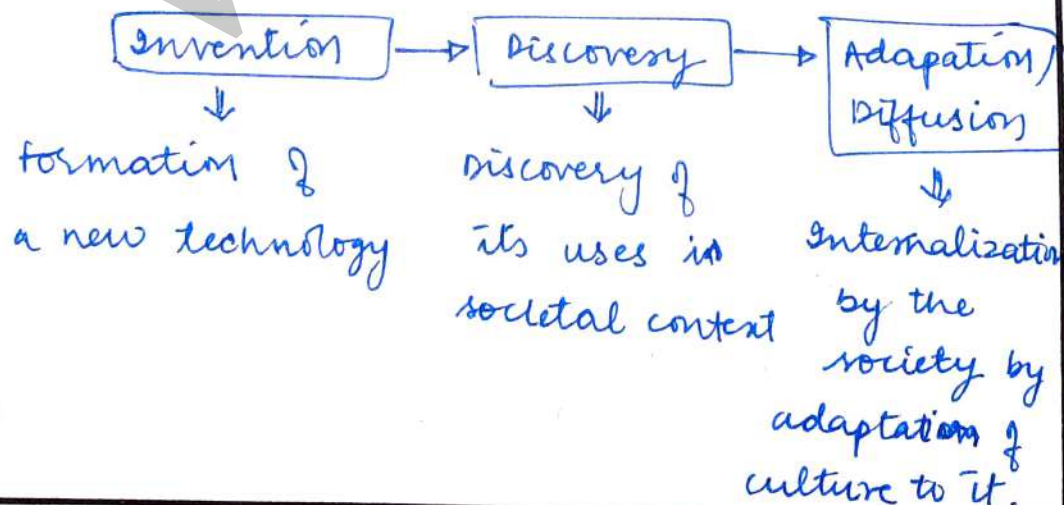 Invention
Discovery
Adapation/
Diffusion
formation of
a new technology
Discovery of
its uses in
societal context
Internalization
by the
society by
adaptation of
culture to it.